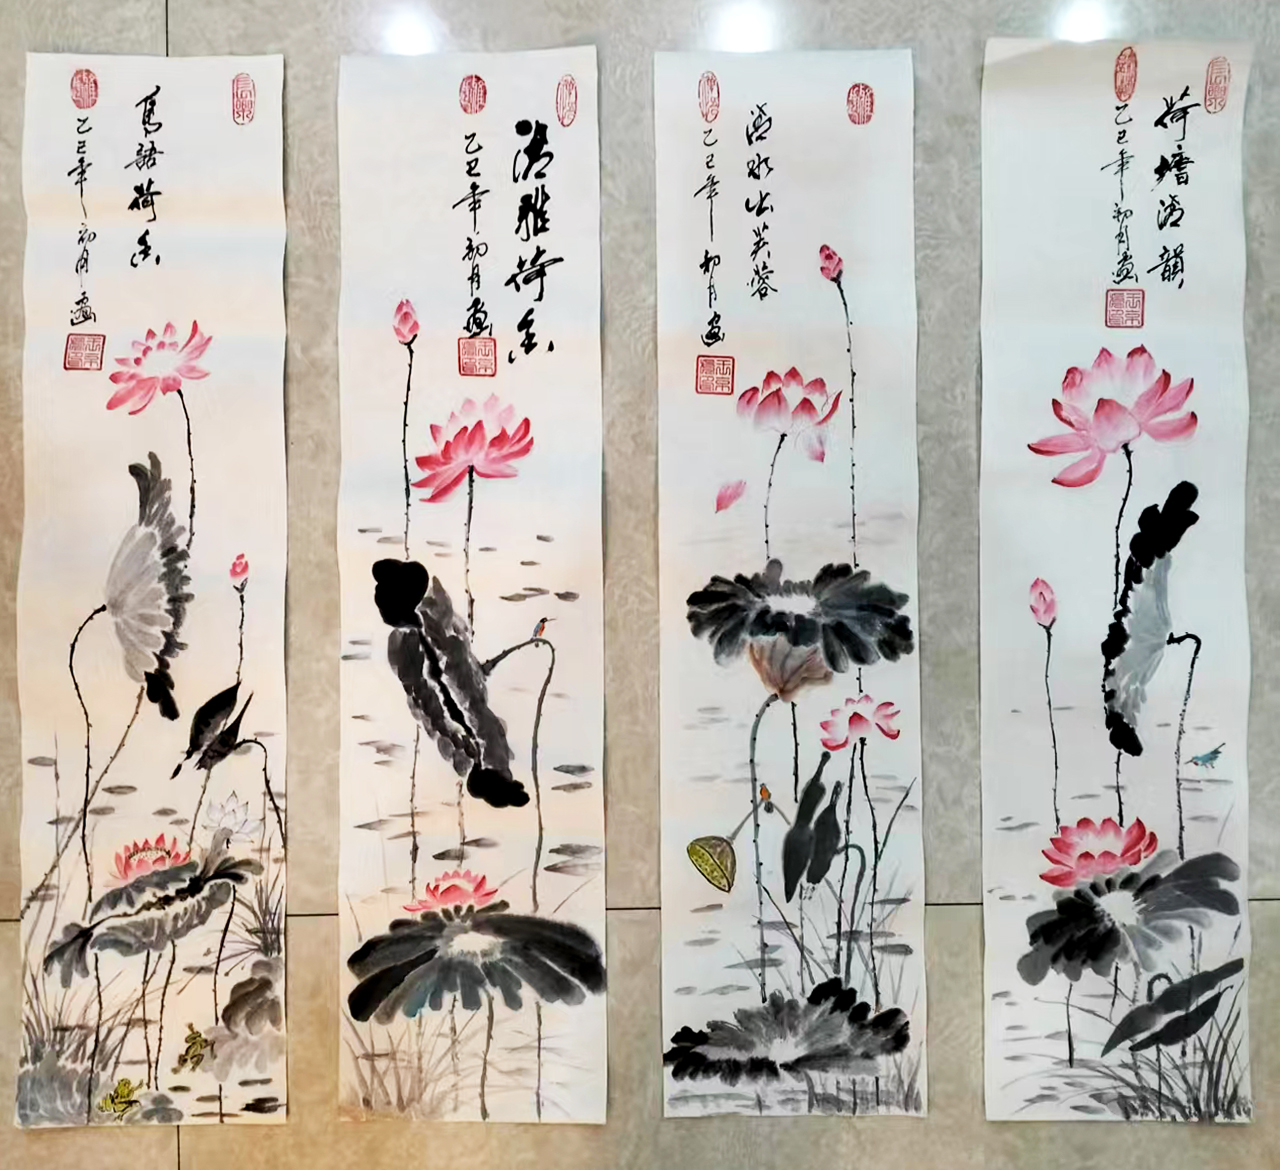 鸟語荷香
乙巳年初月画
清雅荷香
乙巳年初月画
清水出芙蓉
乙巳年初月画
荷塘清韻
乙巳年初月画